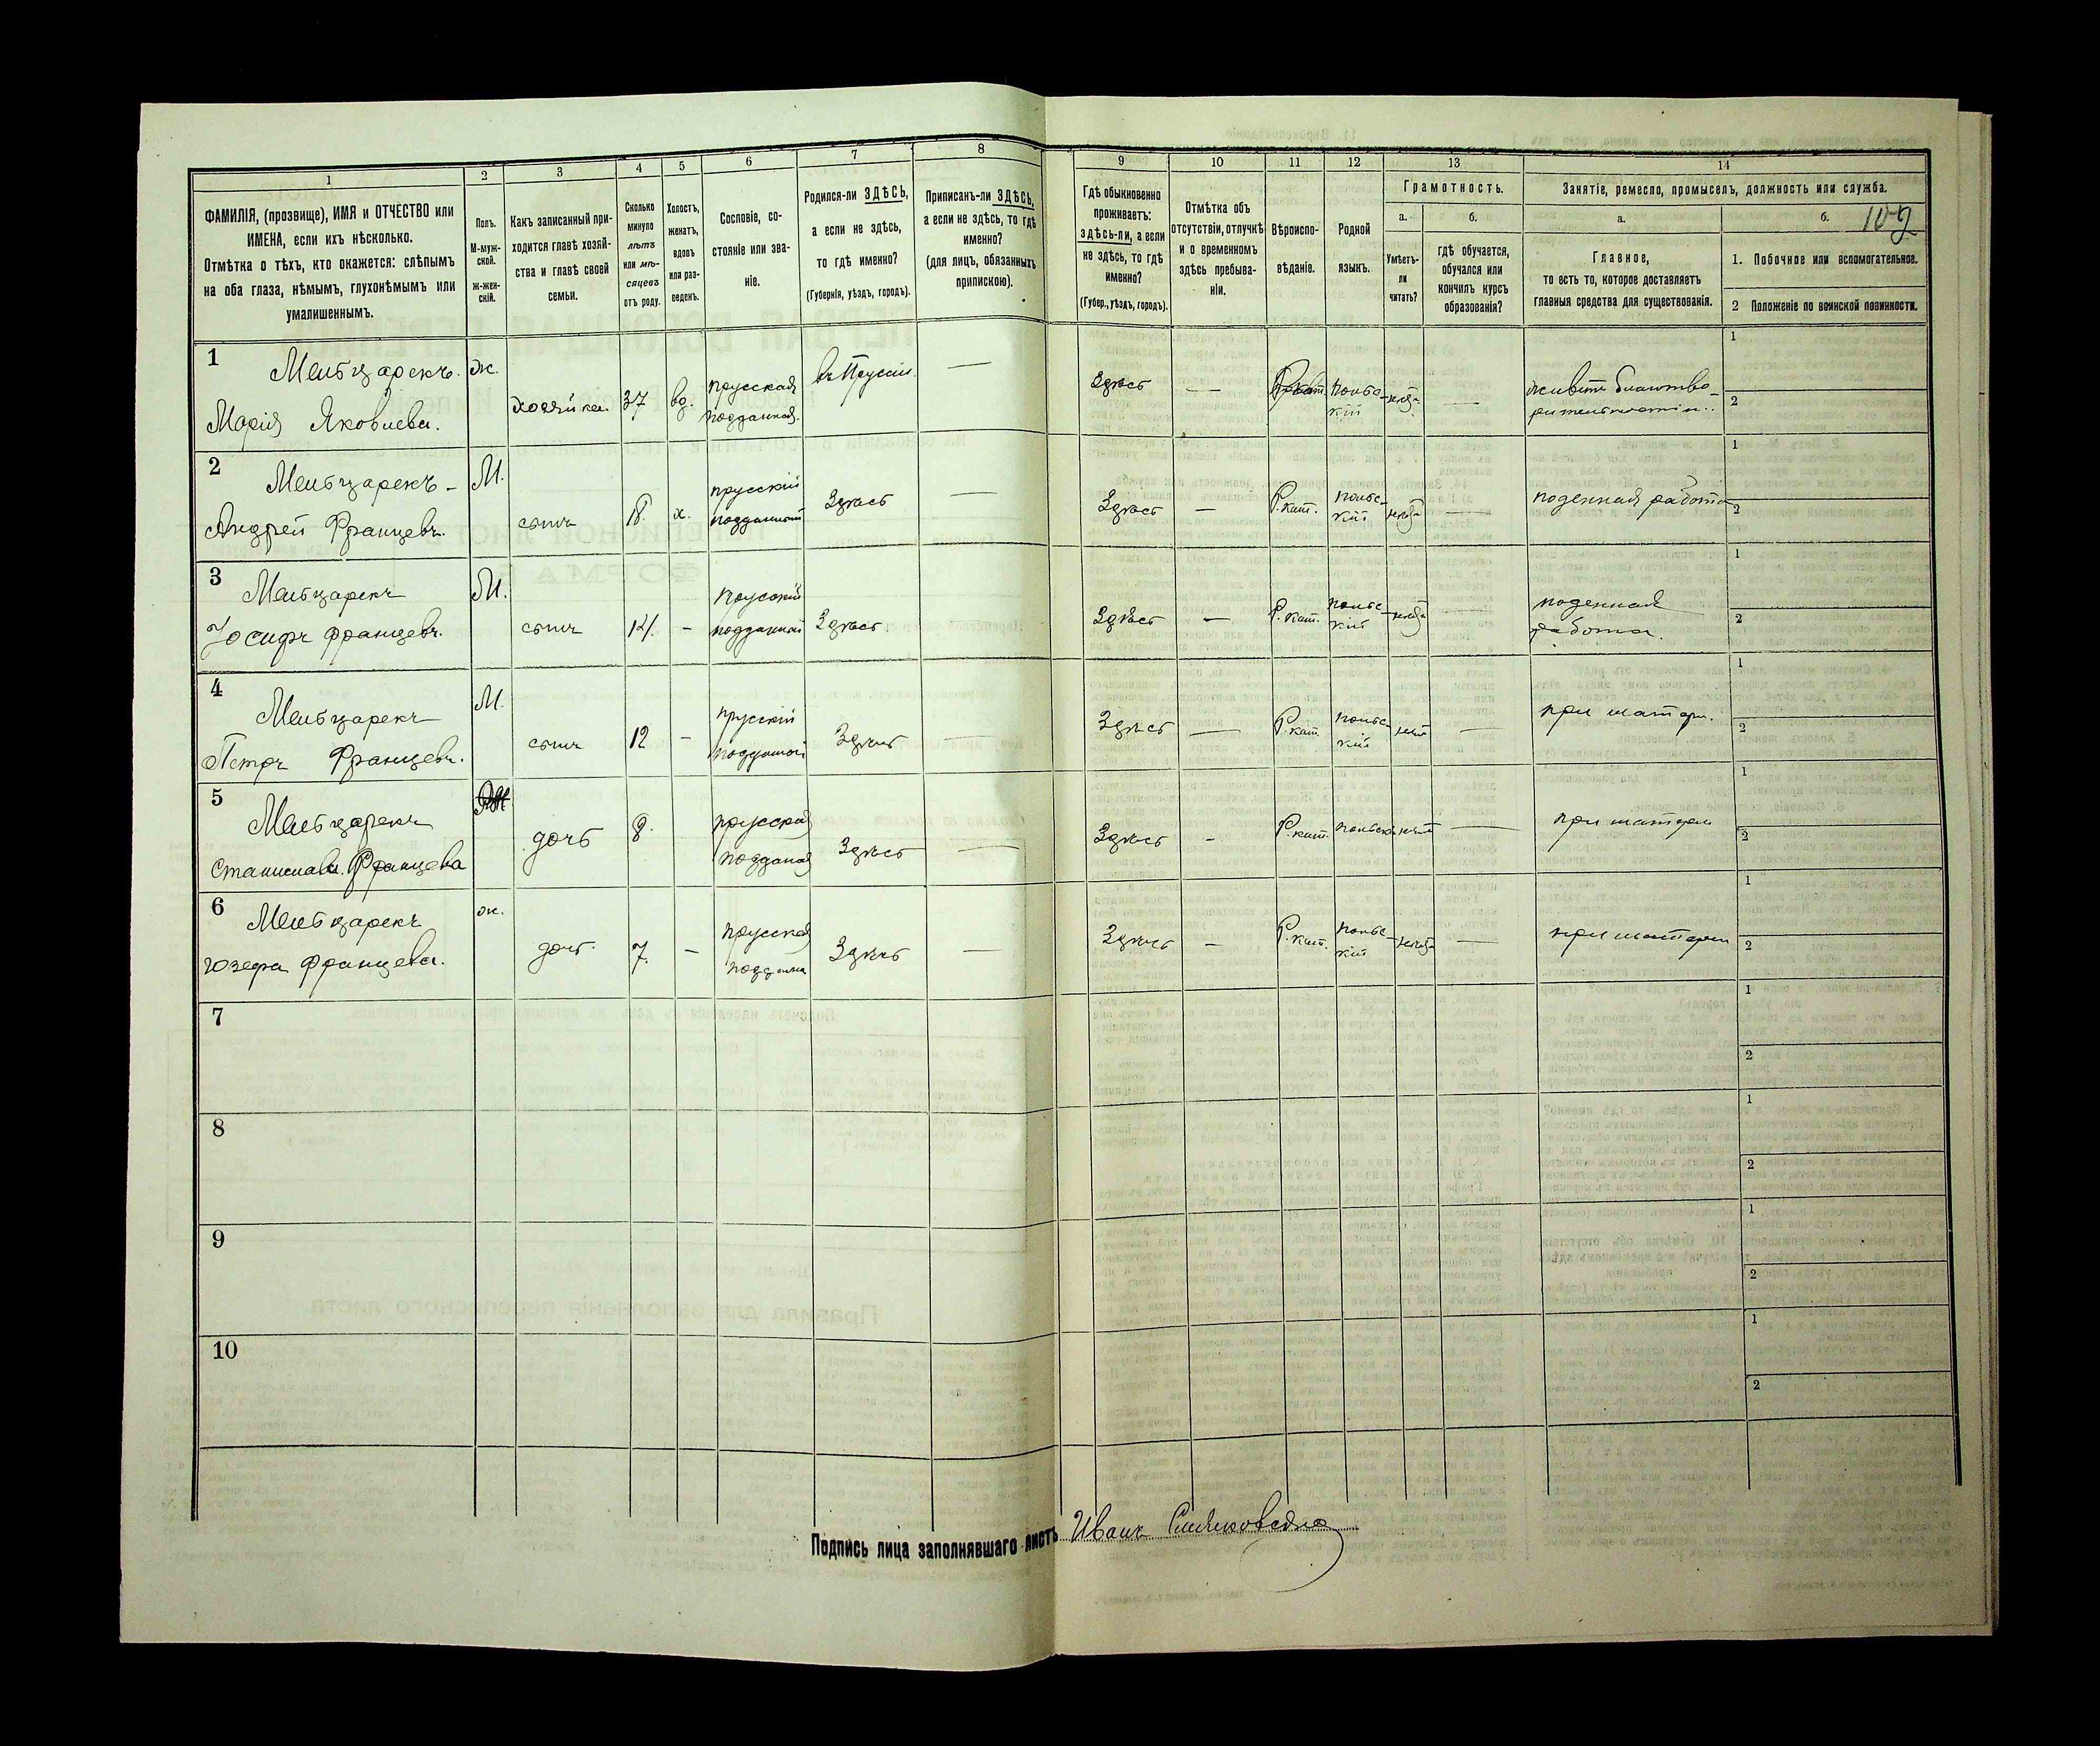 1
2
3
4
5
6
7
8
9
10
11
12
13
14
ФАМИЛІЯ, (прозвище), ИМЯ и ОТЧЕСТВО или
ИМЕНА, если ихъ нѣсколько.
Отмѣтка о тѣхъ, кто окажется: слѣпымъ
на оба глаза, нѣмымъ, глухонѣмымъ или
умалишеннымъ.
Полъ.
М-муж-
ской.
Ж-жен-
скій.
Какъ записанный при-
ходится главѣ хозяй-
ства и главѣ своей
семьи.
Сколько
минуло
лѣтъ
или мѣ-
сяцевъ
отъ роду.
Холостъ,
женатъ,
вдовъ
или раз-
веденъ.
Сословіе, со-
стояніе или зва-
ніе.
Родился-ли ЗДѢСЬ,
а если не здѣсь,
то гдѣ именно?
(Губернія, уѣздъ, городъ).
Приписанъ-ли ЗДѢСЬ,
а если не здѣсь, то гдѣ
именно?
(для лицъ, обязанныхъ
припискою).
Гдѣ обыкновенно
проживаетъ:
здѣсь-ли, а если
не здѣсь, то гдѣ
именно?
(Губер., уѣздъ, городъ).
Отмѣтка объ
отсутствіи, отлучкѣ
и о временномъ
здѣсь пребыва-
ніи.
Вѣроиспо-
вѣданіе.
Родной
языкъ.
Грамотность.
а.
Умѣетъ-
ли
читать?
б.
гдѣ обучается,
обучался или
кончилъ курсъ
образованія?
Занятіе, ремесло, промыселъ, должность или служба.
а.
Главное,
то есть то, которое доставляетъ
главныя средства для существованія.
б.
109
1. Побочное или вспомогательное.
2 Положеніе по воинской повинности.
1
Мельцарекъ.
Марія Яковлева.
ж.
хозяйка.
37
вд.
прусская
подданная.
въ Пруссіи.
—
Здѣсь
—
Р. кат.
польс-
кій
—
живетъ благотво-
рительностію.
1
2
2
Мельцарекъ-
Андрей Францевъ.
М.
сынъ
18.
х.
прусскій
подданный
Здѣсь
—
Здѣсь
—
Р. кат.
польс-
кій
—
поденная работа
1
2
3
Мельцарекъ
Іосифъ Францевъ.
М.
сынъ
14.
-
прусскій
подданный
Здѣсь.
Здѣсь
—
Р. кат.
польс-
кій
—
поденная
работа.
1
2
4
Мельцарекъ
Петръ Францевъ.
М.
сынъ
12
-
прусскій
подданный
Здѣсь
—
Здѣсь
—
Р. кат.
польс-
кій
нѣтъ
—
при матери.
1
2
5
Мельцарекъ
Станислава Францева
дочь
8.
прусская
подданая
Здѣсь
—
Здѣсь
-
Р. кат.
нѣтъ
—
при матери
1
2
6
Мельцарекъ
Юзефа Францева.
ж.
дочь
7.
-
прусская
Здѣсь
—
Здѣсь
-
Р. кат.
польс-
кій
—
при матери
1
2
7
1
2
8
1
2
9
1
2
10
1
2
Подпись лица заполнявшаго листъ Иванъ